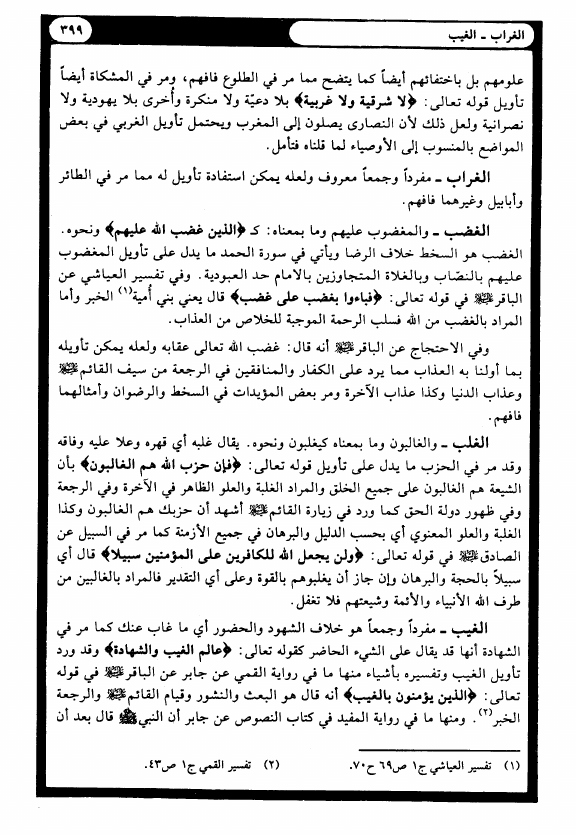 الغراب ـ الغيب
٣٩٩
علومهم بل باختفائهم أيضاً كما يتضح مما مر في الطلوع فافهم، ومر في المشكاة أيضاً
تأويل قوله تعالى: ﴿لا شرقية ولا غربية﴾ بلا دعيّة ولا منكرة وأُخرى بلا يهودية ولا
نصرانية ولعل ذلك لأن النصارى يصلون إلى المغرب ويحتمل تأويل الغربي في بعض
المواضع بالمنسوب إلى الأوصياء لما قلناه فتأمل.
الغراب ـ مفرداً وجمعاً معروف ولعله يمكن استفادة تأويل له مما مر في الطائر
وأبابيل وغيرهما فافهم.
الغضب ـ والمغضوب عليهم وما بمعناه: كـ ﴿الذين غضب الله عليهم﴾ ونحوه.
الغضب هو السخط خلاف الرضا ويأتي في سورة الحمد ما يدل على تأويل المغضوب
عليهم بالنصّاب وبالغلاة المتجاوزين بالامام حد العبودية. وفي تفسير العياشي عن
الباقر عليه السلام في قوله تعالى: ﴿فباءوا بغضب على غضب﴾ قال يعني بني أُمية(١) الخبر وأما
المراد بالغضب من الله فسلب الرحمة الموجبة للخلاص من العذاب.
وفي الاحتجاج عن الباقر عليه السلام أنه قال: غضب الله تعالى عقابه ولعله يمكن تأويله
بما أولنا به العذاب مما يرد على الكفار والمنافقين في الرجعة من سيف القائم عليه السلام
وعذاب الدنيا وكذا عذاب الآخرة ومر بعض المؤيدات في السخط والرضوان وأمثالهما
فافهم.
الغلب ـ والغالبون وما بمعناه كيغلبون ونحوه. يقال غلبه أي قهره وعلا عليه وفاقه
وقد مر في الحزب ما يدل على تأويل قوله تعالى: ﴿فإن حزب الله هم الغالبون﴾ بأن
الشيعة هم الغالبون على جميع الخلق والمراد الغلبة والعلو الظاهر في الآخرة وفي الرجعة
وفي ظهور دولة الحق كما ورد في زيارة القائم عليه السلام أشهد أن حزبك هم الغالبون وكذا
الغلبة والعلو المعنوي أي بحسب الدليل والبرهان في جميع الأزمنة كما مر في السبيل عن
الصادق عليه السلام في قوله تعالى: ﴿ولن يجعل الله للكافرين على المؤمنين سبيلا﴾ قال أي
سبيلاً بالحجة والبرهان وإن جاز أن يغلبوهم بالقوة وعلى أي التقدير فالمراد بالغالبين من
طرف الله الأنبياء والأئمة وشيعتهم فلا تغفل.
الغيب ـ مفرداً وجمعاً هو خلاف الشهود والحضور أي ما غاب عنك كما مر في
الشهادة أنها قد يقال على الشيء الحاضر كقوله تعالى: ﴿عالم الغيب والشهادة﴾ وقد ورد
تأويل الغيب وتفسيره بأشياء منها ما في رواية القمي عن جابر عن الباقر عليه السلام في قوله
تعالى: ﴿الذين يؤمنون بالغيب﴾ أنه قال هو البعث والنشور وقيام القائم عليه السلام والرجعة
الخبر(٢). ومنها ما في رواية المفيد في كتاب النصوص عن جابر أن النبي ﷺ قال بعد أن
(١) تفسير العياشي ج١ ص٦٩ ح٧٠.
(٢) تفسير القمي ج١ ص٤٣.